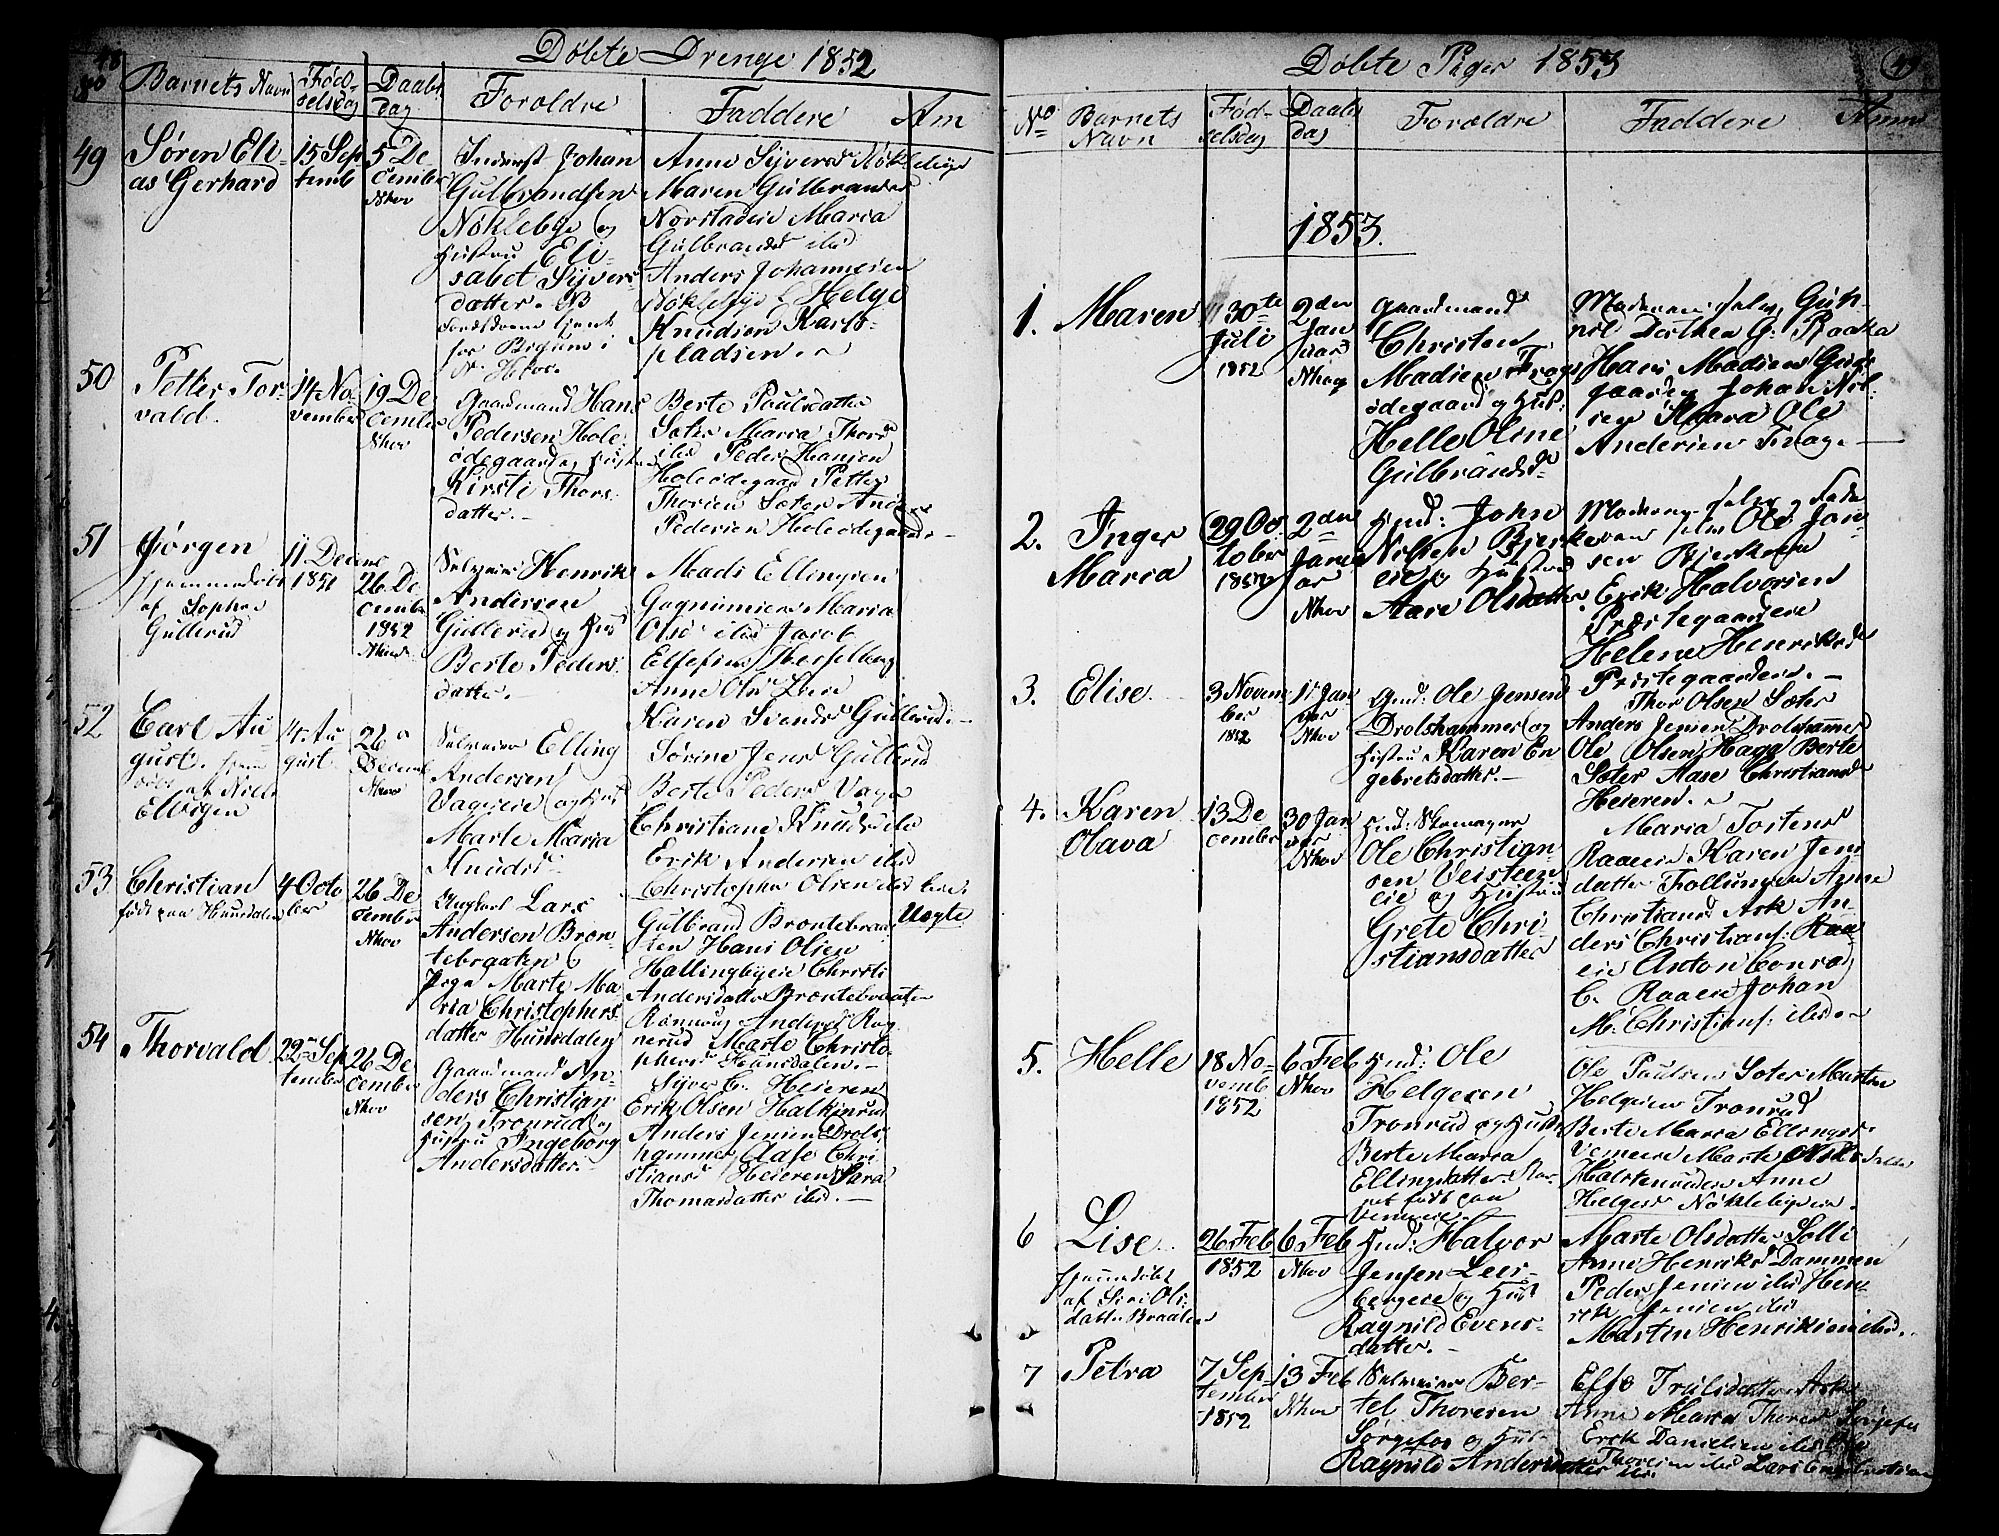 48
Döbte Drenge 1852
No
Barnets Navn
Fød-
selsdag
Daabs
dag
Forældre
Faddere
Anm
49
Søren Eli-
as Gerhard
15 Sep
temb
5 De
cember
Nhov
Inderst Johan
Gulbrandsen
Nøklebye og
Hustru Eli-
sabet Syvers
datter.
Anne Syversd Nøklebye
Maren Gulbrandsd
Norstadeie Maria
Gulbrandsd ibid
Anders Johannesen
Nøklebye & Helge
Knudsen Karls-
pladsen.
50
Petter Tor-
vald.
14 No
vember
19 De
cember
Nhov
Gaardmand Hans
Pedersen Hole
ødegaard og Hustru
Kirsti Thors-
datter.
Berte Poulsdatter
Soter Maria Thorsd
ibid Peder Hansen
Holeødegaard Petter
Thorsen Soter Anders
Pedersen Holeødegaard.
51
Jørgen
hjemmedøbt
af Sophie
Gullerud
11 Decem
1851
26 De
cember
1852
Nhov
Selveier Henrik
Andersen
Gullerud og Hus
Berte Peders
datter.
Mads Ellingsen
Gagnumeie Maria
Olsd ibid Jacob
Elsefsen Hesselberg
Anne Olsd Leeie
Karen Svendsd Gullerud.
52
Carl Au-
gust. hjem
døbt af Niels
Elvigen
4 Au
gust
26
Decemb
Nhov
Selveier Elling
Andersen
Vageeie og Hus
Marte Maria
Knudsd
Sørine Jensd Gullerud
Berte Pedersd Vagn
Christiane Knudsd ibid
Erik Andersen ibid
Christopher Olsen ibid
53
Christian
født paa Hunsdalen
4 Octo
ber
26 De
cember
Nhov
Ungkarl Lars
Andersen Bron-
tebraaten og
Pige Marte Ma
ria Christophers
datter Hunsdalen
Gulbrand Brontebraa-
ten Hans Olsen
Hallingbyeie Christi
Andersdatter Brontebraaten
Rønnaug Andersd Rag
nerud Marte Christo
phersd Hunsdalen.
Uægte
54
Thorvald
22 Sep
tember
26 De
cember
Nhov
Gaardmand An-
ders Christian
sen Tronrud og
Hustru Ingeborg
Andersdatter
Syver C. Heieren
Erik Olsen Halkinrud
Anders Jensen Drols
hammer Aase Chri
stiansd Heieren Sara
Thomasdatter ibid.
Döbte Piger 1853
49
No
Barnets
Navn
Fød-
selsdag
Daabs
dag
Forældre
Faddere
Anm
1853.
1.
Maren
30te
Juli
1852
2den
Jan
uar
Nhov
Gaardmand
Christen
Madsen Frogs
ødegaard og Hus-
Helle Oline
Gulbrandsd
Moderen selv, Gun-
nil Dorthea G. Raaka
Hans Madsen Guds
gaard Johan Nil-
sen Raara Ole
Andersen Frog.
2.
Inger
Maria
29 Oc
tober
1852
2den
Janu
ar
Nhov
Hmd: John
Nilsen Bjerke
eie og Hustru
Aase Olsdatter.
Moderen selv og Fade
ren selv Ole Jan-
sen Bjerkeeie
Erik Halvorsen
Præstegaardeie
Helene Henriksd
Præstegaardeie.
3.
Elise.
3 Novem
ber
1852
11 Jan
uar
Nhov
Hmd: Ole Jensen
Drolshammer og
Hustru Karen En
gebretsdatter.
Thor Olsen Soter
Anders Jensen Drolshammer
Ole Olsen Haga Berte
Soter Aase Christiansd
Heieren.
4.
Karen
Olava
13 De
cember
30 Jan
uar
Nhov
Hmd: Skomager
Ole Christian-
sen Veisteen
eie og Hustru
Grete Chri-
stiansdatter
Maria Tostensd
Raaeie Karen Jens
datter Follungen Anne
Christiansd Ask An-
ders Christians: Raa-
eie Anton Conrad
C. Raaeie Johan
M. Christians: ibid
5.
Helle
18 No-
vemb
1852
6 Feb
Nhov
Hmd: Ole
Helgesen
Tronrud og Hustru
Berte Maria
Ellingsdatter. Bar-
net født paa
Vemeeie.
Ole Paulsen Soter Marten
Helgesen Tronrud
Berte Maria Ellingsd
Vemeeie Marte Nilsdatter
Halstenrudeie Anne
Helgesd Nøklebyeie.
6
Lise
hjemmedøbt
af Siri Ols
datter Braaten
26 Feb
1852
6 Feb
Nhov
Hmd: Halvor
Jensen Lees-
bergeie og Hust
Ragnild Evens-
datter.
Marte Olsdatter Solli
Anne Henriksd Dammen
Peder Jensen ibid Hen-
rik Jensen ibid
Martin Henriksen ibid.
7
Petra
7 Sep
tember
1852
13 Feb
Nhov
Selveier Ber-
tel Thoresen
Sørgefos og Hus-
Ragnild Andersdatter
Else Trulsdatter Ask
Anne Maria Thoresd Sørgefos
Erik Danielsen ibid Ole
Thoresen ibid Lars Engebretsen
ibid